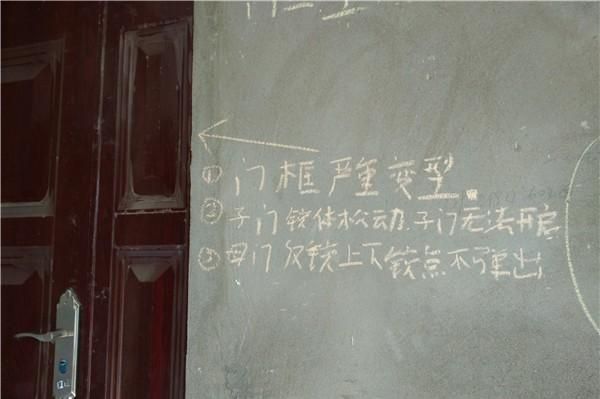 ①门框严重变型.
②子门锁体松动.子门无法开启
③母门反锁上下锁点不弹出